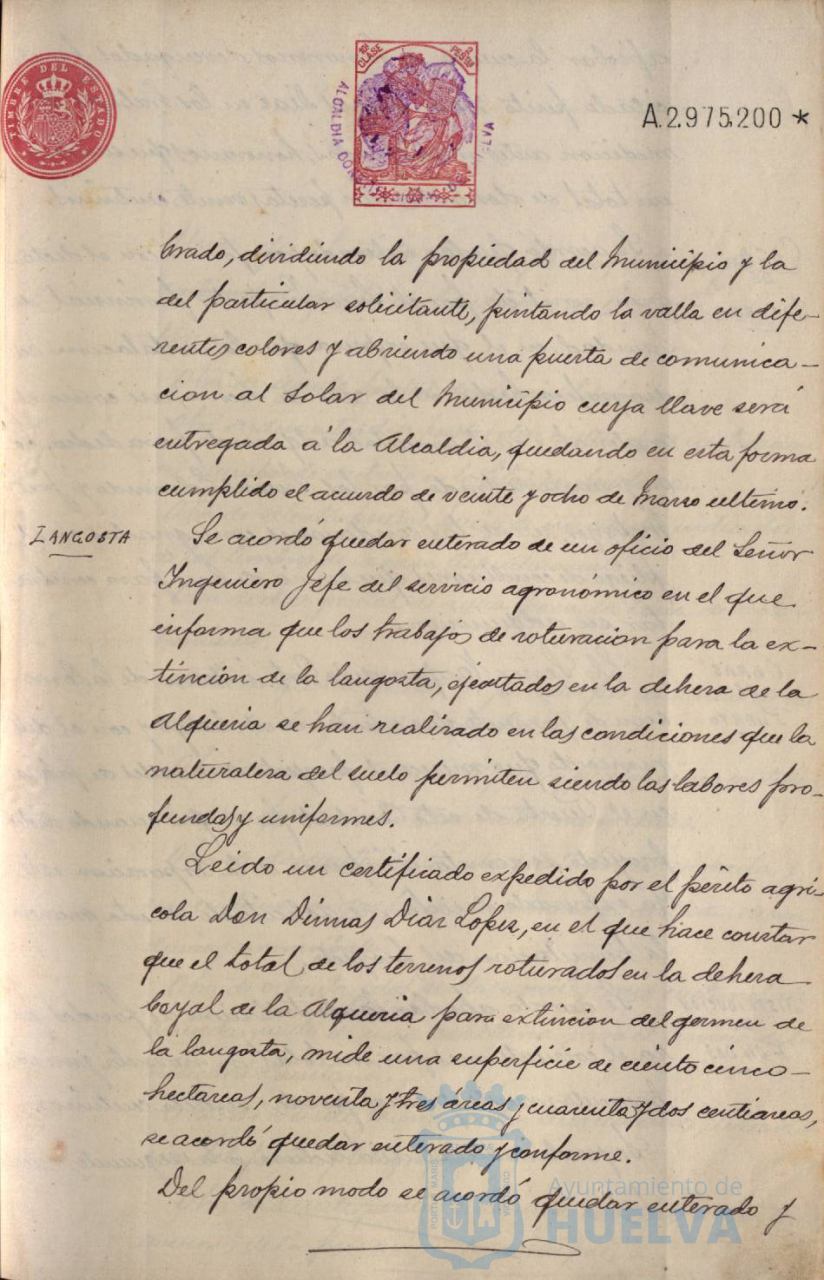 TIMBRE DEL ESTADO
10ª CLASE
2 PESTAS
ALCALDIA CONSTITUCIONAL DE HUELVA
A.2.975.200 *
brado, dividiendo la propiedad del Municipio y la
del particular solicitante, pintando la valla en dife-
rentes colores y abriendo una puerta de comunica-
cion al solar del Municipio cuya llave será
entregada á la Alcaldia, quedando en esta forma
cumplido el acuerdo de veinte y ocho de Marzo ultimo.
LANGOSTA
Se acordó quedar enterado de un oficio del Señor
Ingeniero Jefe del servicio agronómico en el que
informa que los trabajos de roturacion para la ex-
tinción de la langosta, ejecutados en la dehesa de la
Alqueria se han realizado en las condiciones que la
naturaleza del suelo permiten siendo las labores pro-
fundas y uniformes.
Leido un certificado expedido por el périto agrí-
cola Don Dimas Diaz Lopez, en el que hace constar
que el total de los terrenos roturados en la dehesa
boyal de la Alqueria para extincion del germen de
la langosta, mide una superficie de ciento cinco-
hectareas, noventa y tres áreas y cuarenta y dos centiareas,
se acordó quedar enterado y conforme.
Del propio modo se acordó quedar enterado y
Ayuntamiento de
HUELVA